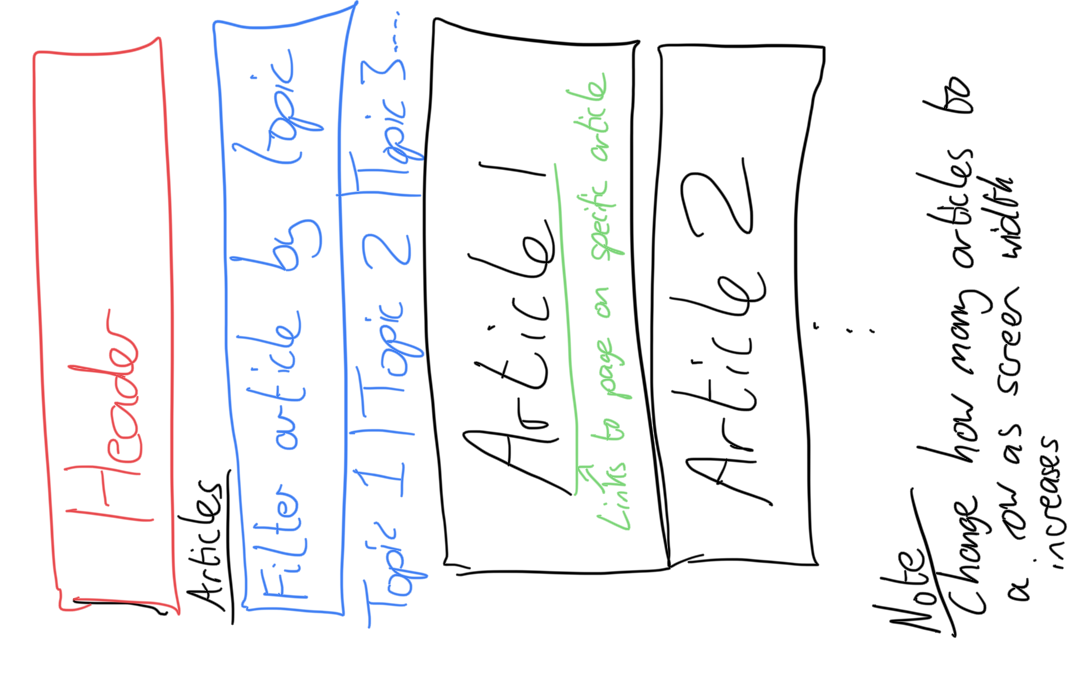 Header
Articles
Filter article by topic
Topic 1 | Topic 2 | Topic 3....
Article 1
Links to page on specific article
Article 2
Note
Change how many articles to
a row as screen width
increases